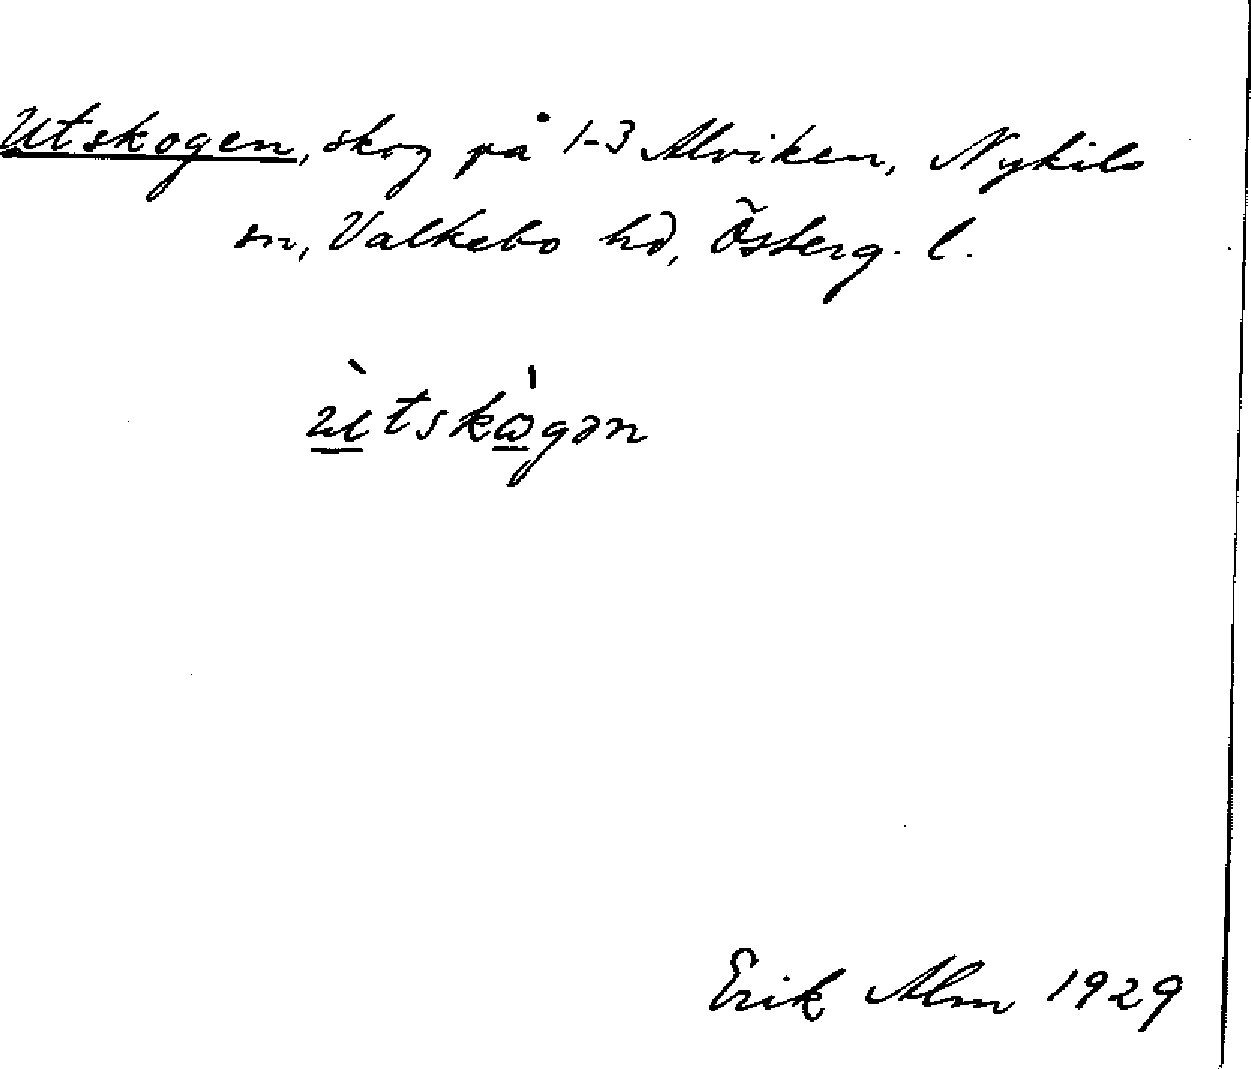 Utskogen, skog på 1-3 Alviken, Nykils
sn, Valkebo hd, Österg. l.
ù̱tskὼ̱gən
Erik Alm 1929